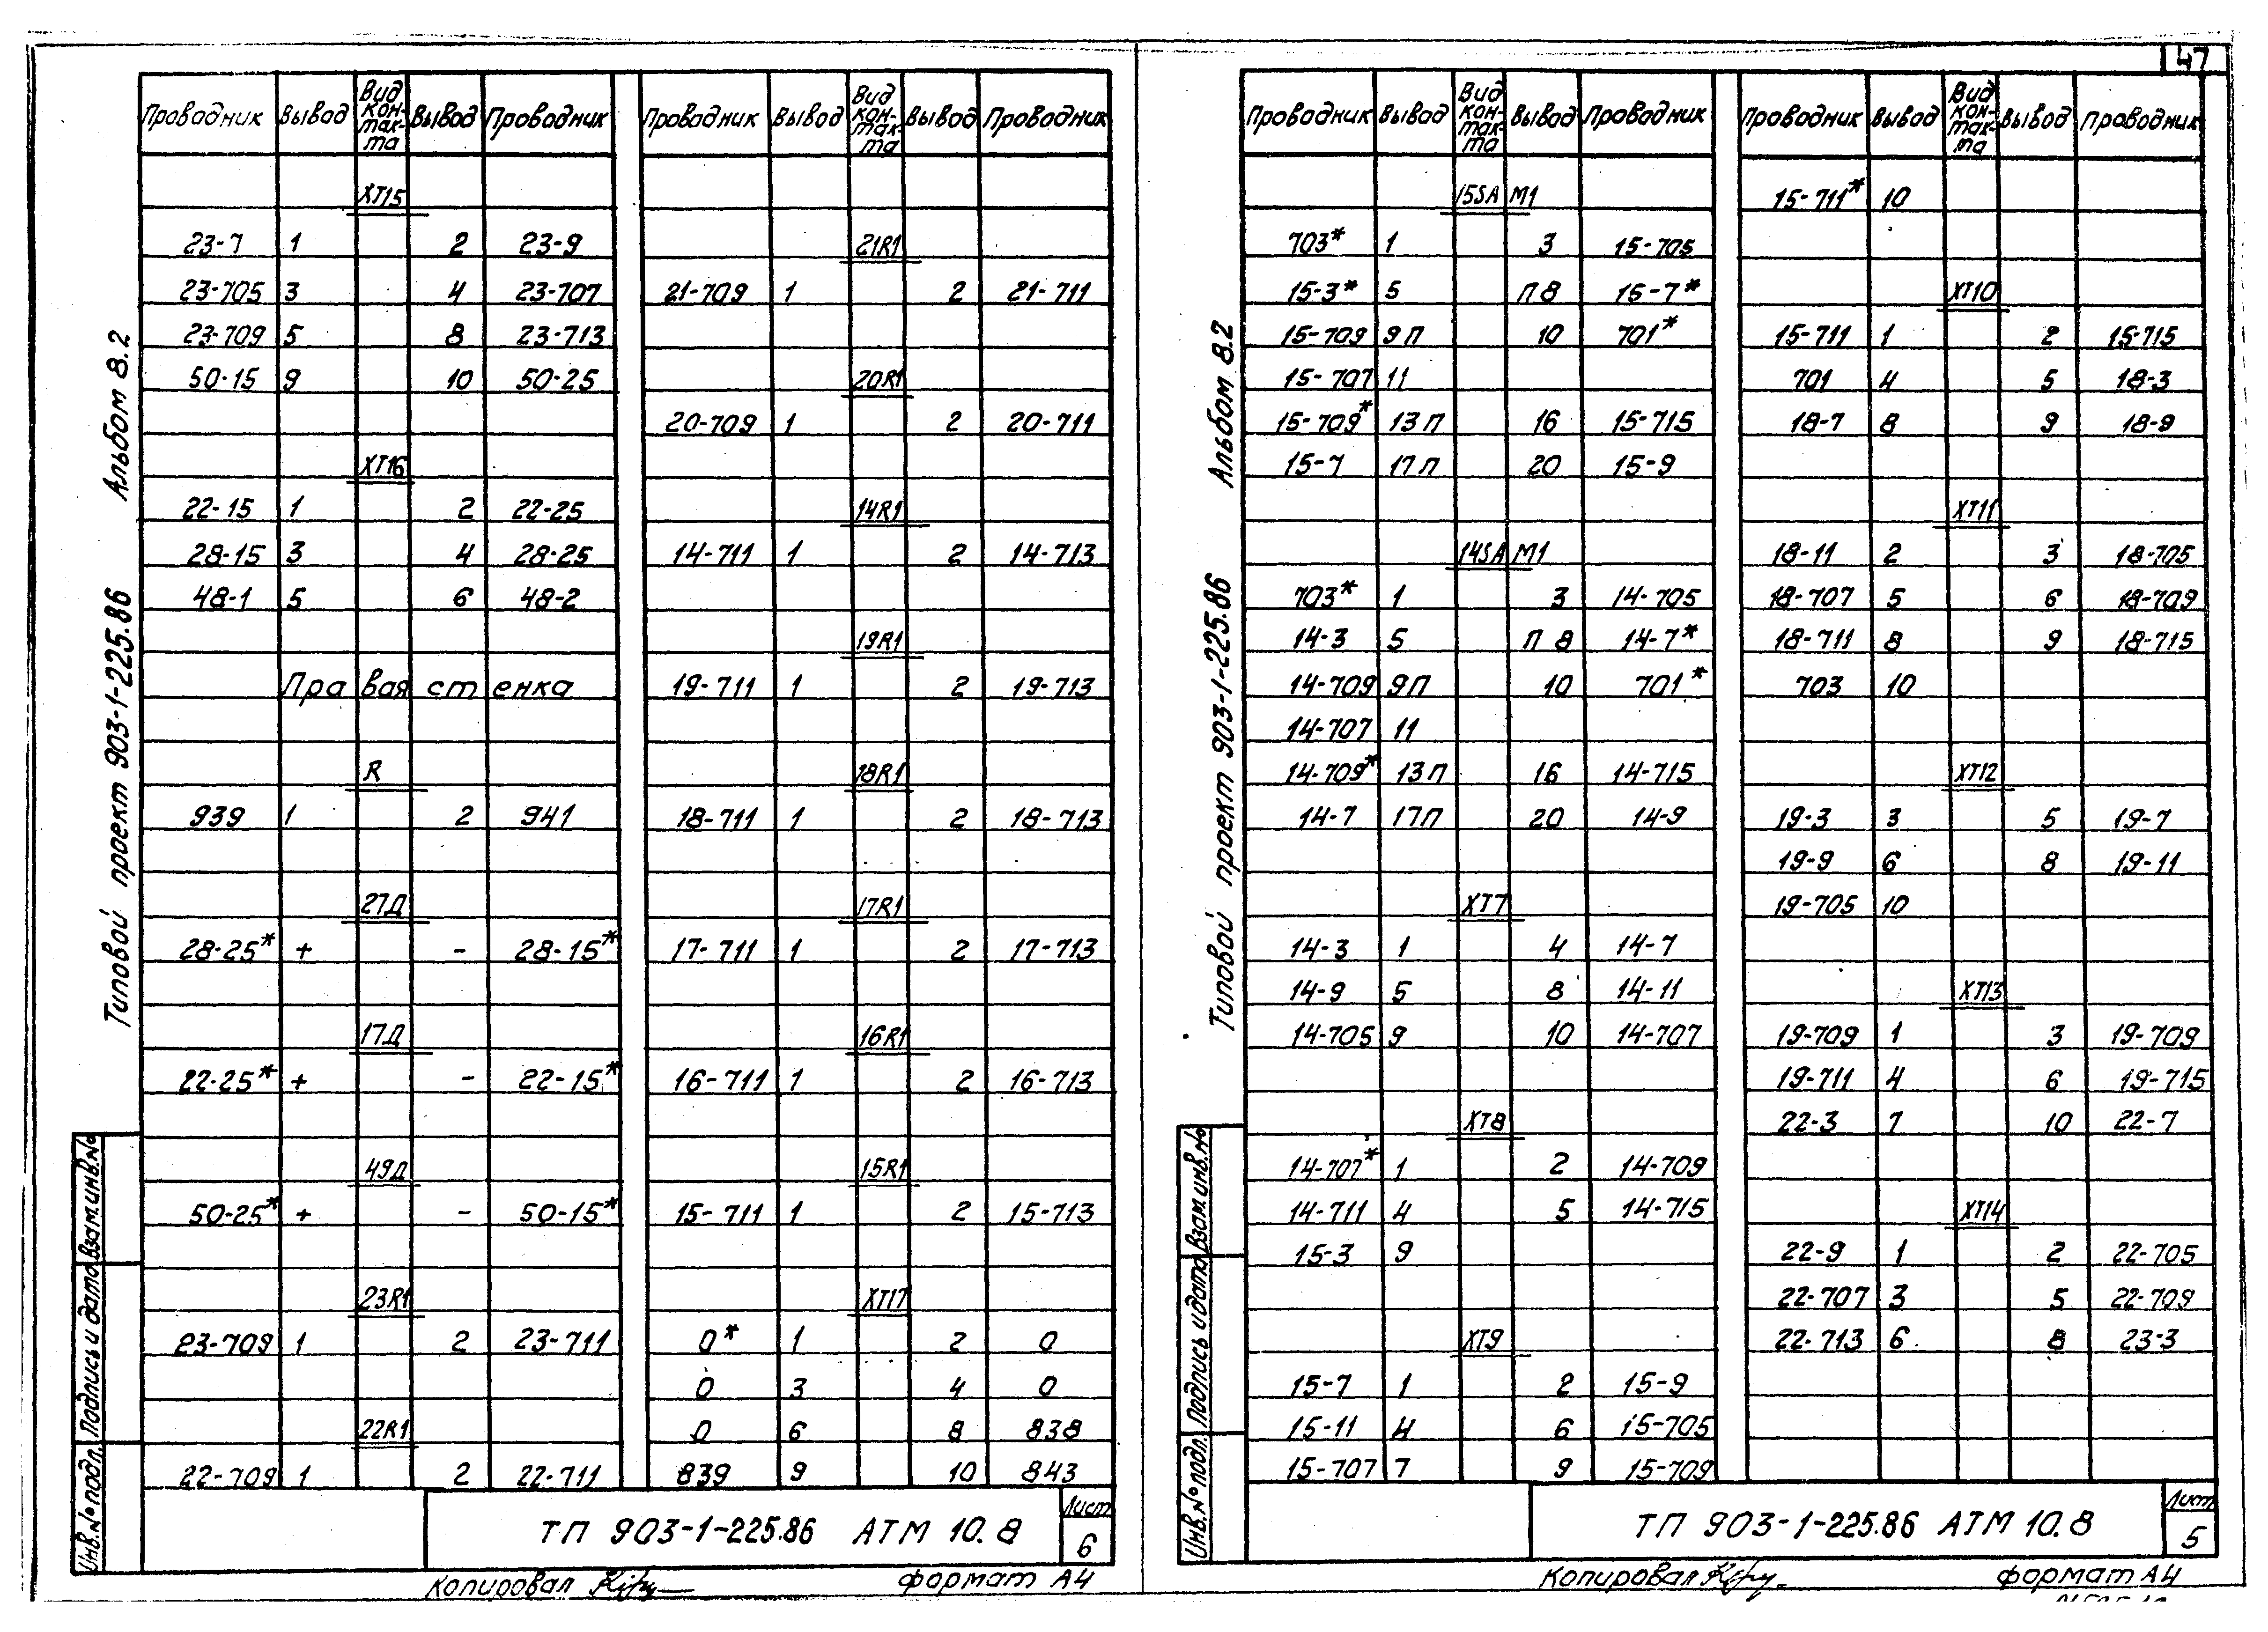 47
Альбом 8.2
Типовой проект 903-1-225.86
Проводник Вывод Вид кон-так-та Вывод Проводник
XT15
23-7 1 2 23-9
23-705 3 4 23-707
23-709 5 8 23-713
50-15 9 10 50-25
XT16
22-15 1 2 22-25
28-15 3 4 28-25
48-1 5 6 48-2
Правая стенка
R
939 1 2 941
27Д
28-25* + - 28-15*
17Д
22-25* + - 22-15*
49Д
50-25* + - 50-15*
23R1
23-709 1 2 23-711
22R1
22-709 1 2 22-711
Проводник Вывод Вид кон-так-та Вывод Проводник
21R1
21-709 1 2 21-711
20R1
20-709 1 2 20-711
14R1
14-711 1 2 14-713
19R1
19-711 1 2 19-713
18R1
18-711 1 2 18-713
17R1
17-711 1 2 17-713
16R1
16-711 1 2 16-713
15R1
15-711 1 2 15-713
XT17
0* 1 2 0
0 3 4 0
0 6 8 838
839 9 10 843
Инв.№ подл. Подпись и дата Взам.инв.№
ТП 903-1-225.86 АТМ 10.8
Лист
6
Копировал
формат А4
Альбом 8.2
Типовой проект 903-1-225.86
Проводник Вывод Вид кон-так-та Вывод Проводник
15SA М1
703* 1 3 15-705
15-3* 5 П 8 15-7*
15-709 9П 10 701*
15-707 11
15-709* 13П 16 15-715
15-7 17П 20 15-9
14SA М1
703* 1 3 14-705
14-3 5 П 8 14-7*
14-709 9П 10 701*
14-707 11
14-709* 13П 16 14-715
14-7 17П 20 14-9
XT7
14-3 1 4 14-7
14-9 5 8 14-11
14-705 9 10 14-707
XT8
14-707* 1 2 14-709
14-711 4 5 14-715
15-3 9
XT9
15-7 1 2 15-9
15-11 4 6 15-705
15-707 7 9 15-709
Проводник Вывод Вид кон-так-та Вывод Проводник
15-711* 10
XT10
15-711 1 2 15-715
701 4 5 18-3
18-7 8 9 18-9
XT11
18-11 2 3 18-705
18-707 5 6 18-709
18-711 8 9 18-715
703 10
XT12
19-3 3 5 19-7
19-9 6 8 19-11
19-705 10
XT13
19-709 1 3 19-709
19-711 4 6 19-715
22-3 7 10 22-7
XT14
22-9 1 2 22-705
22-707 3 5 22-709
22-713 6 8 23-3
Инв.№ подл. Подпись и дата Взам.инв.№
ТП 903-1-225.86 АТМ 10.8
Лист
5
Копировал
формат А4